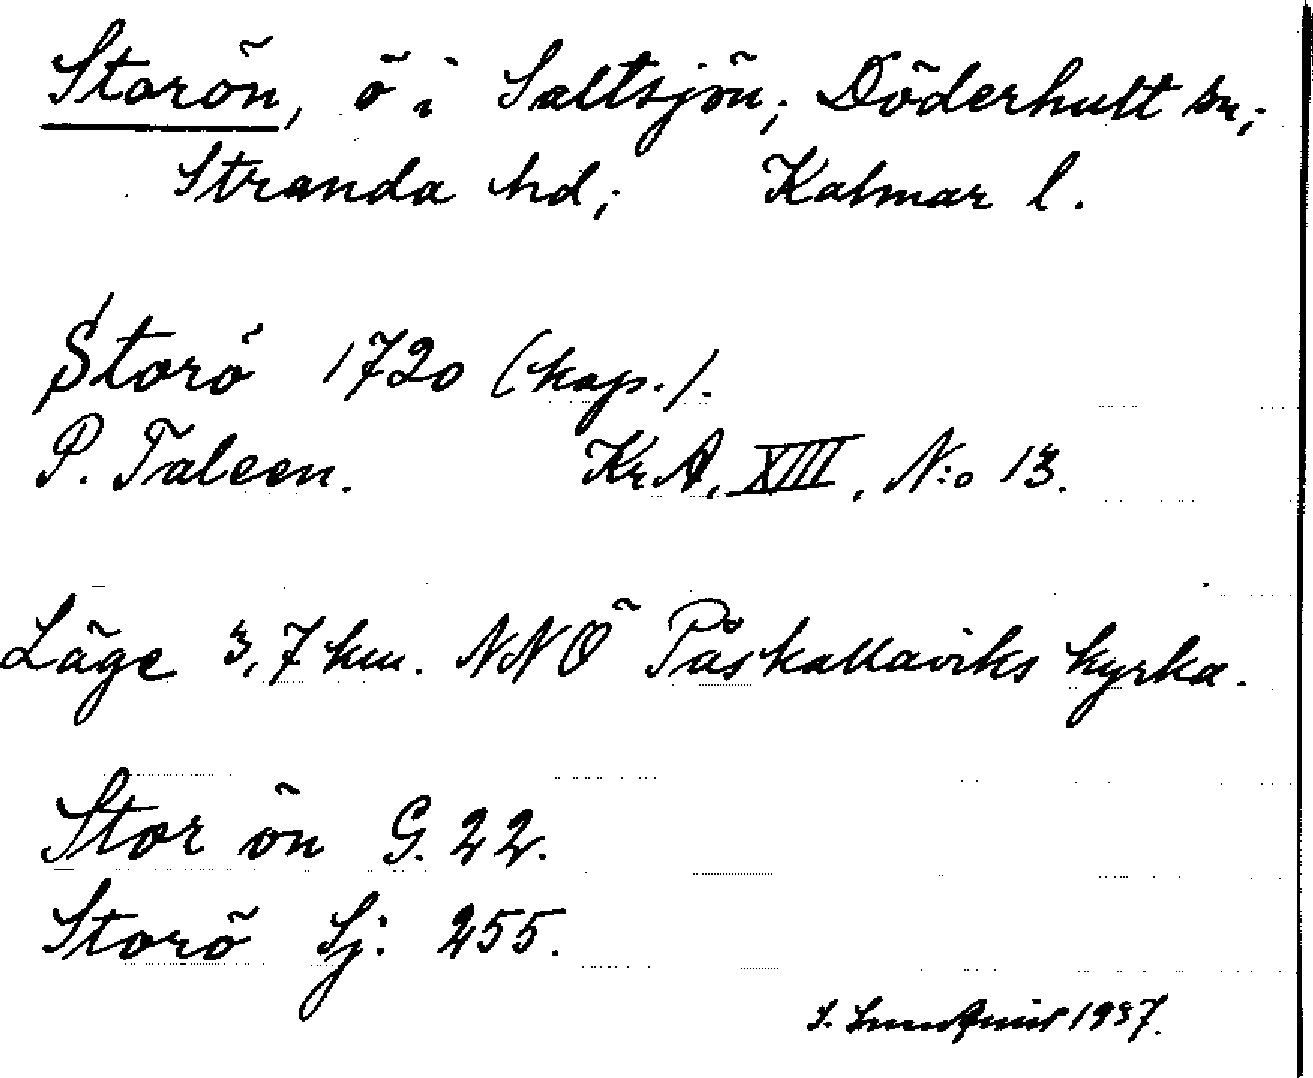 Storön, ö i Saltsjön; Döderhult sn;
Stranda hd; Kalmar l.
Storö 1720 (kop.).
P. Taleen. KrA, XIII, N:o 13.
Läge 3,7 km. NNÖ Påskallaviks kyrka.
Stor ön G. 22.
Storö Sj. 255.
S. Lundquist 1937.